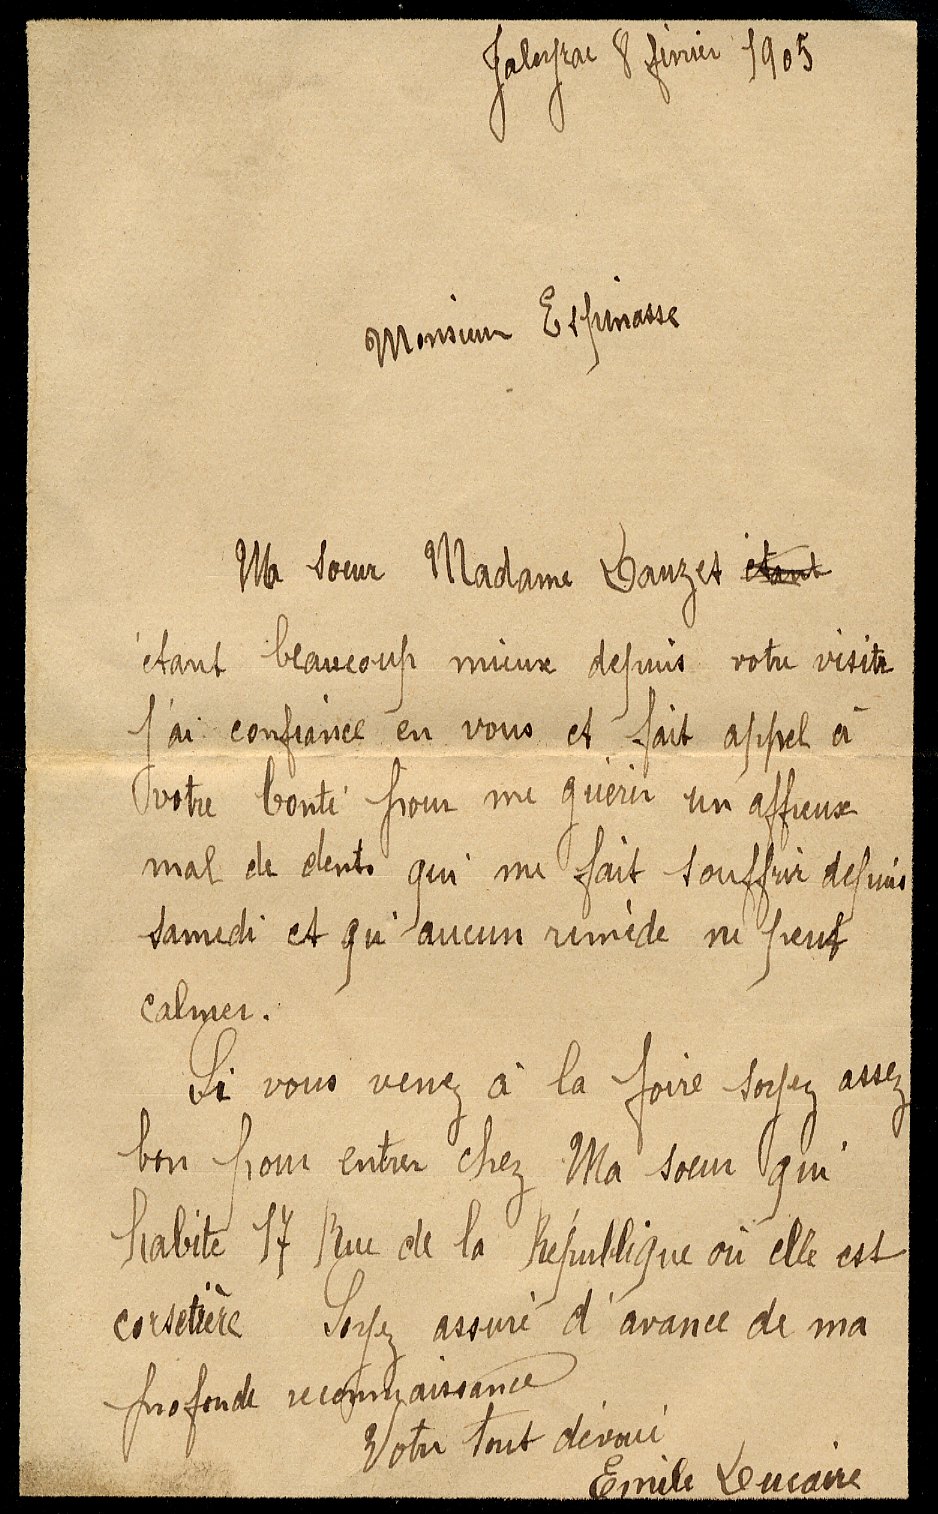 Jaleyrac 8 février 1905
Monsieur Espinasse
Ma soeur Madame Lauzet étant
étant beaucoup mieux depuis votre visite
j'ai confiance en vous et fait appel à
votre bonté pour me guérir un affreux
mal de dents qui me fait souffrir depuis
samedi et qu'aucun remède ne peut
calmer.
Si vous venez à la foire soyez assez
bon pour entrer chez Ma soeur qui
habite 17 Rue de la République où elle est
corsetière Soyez assuré d'avance de ma
profonde reconnaissance
Votre tout dévoué
Emile Lucaire